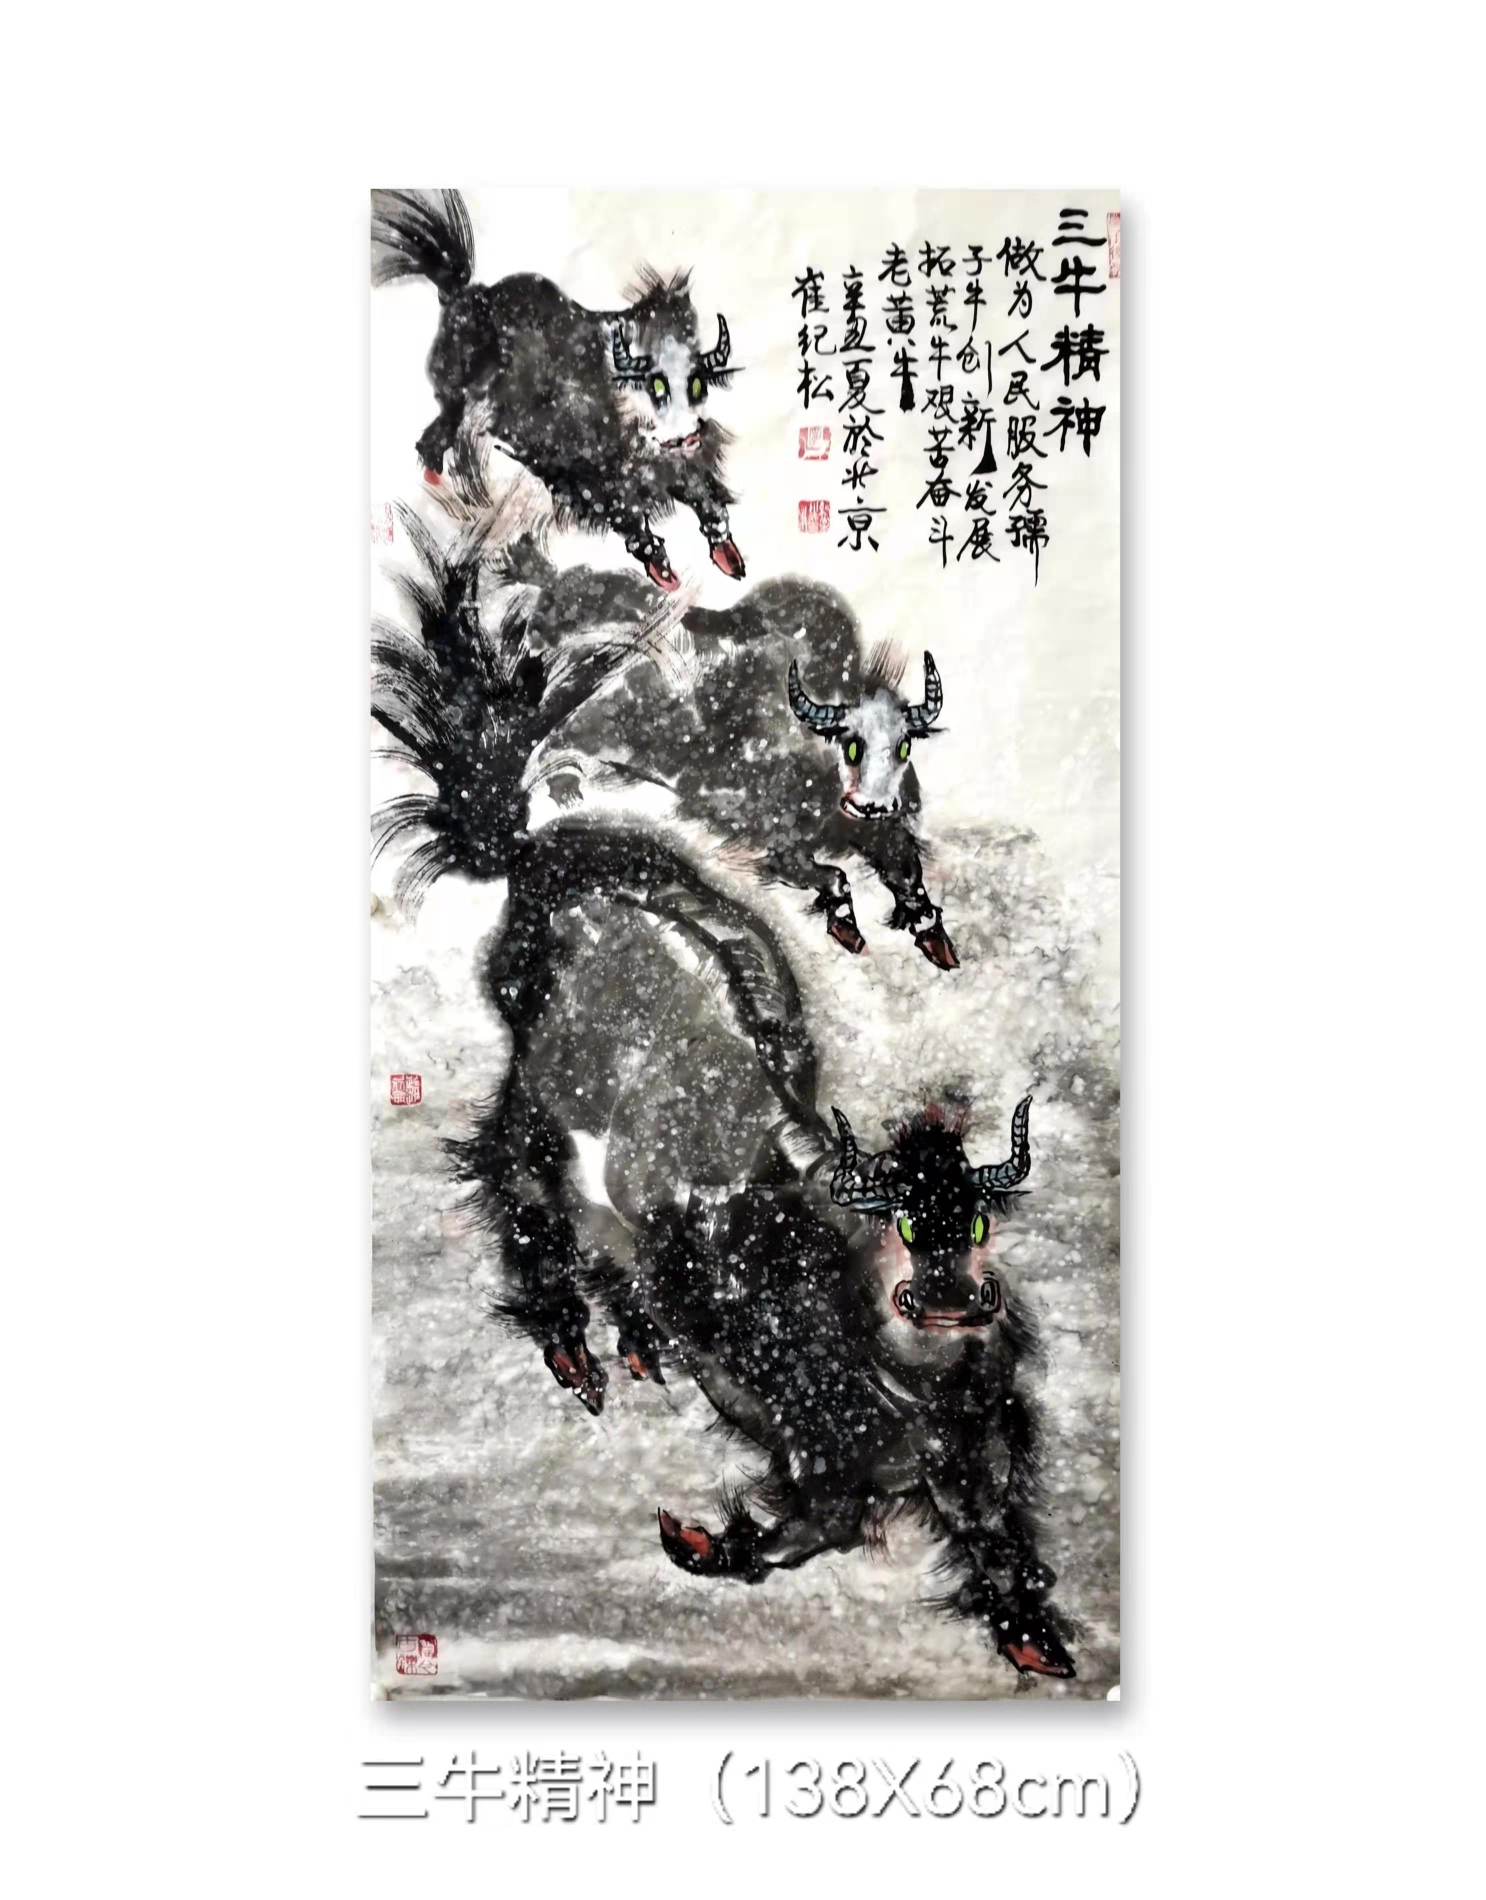 三牛精神
做为人民服务孺
子牛创新发展
拓荒牛艰苦奋斗
老黄牛
辛丑夏於北京
崔纪松
三牛精神（138X68cm）